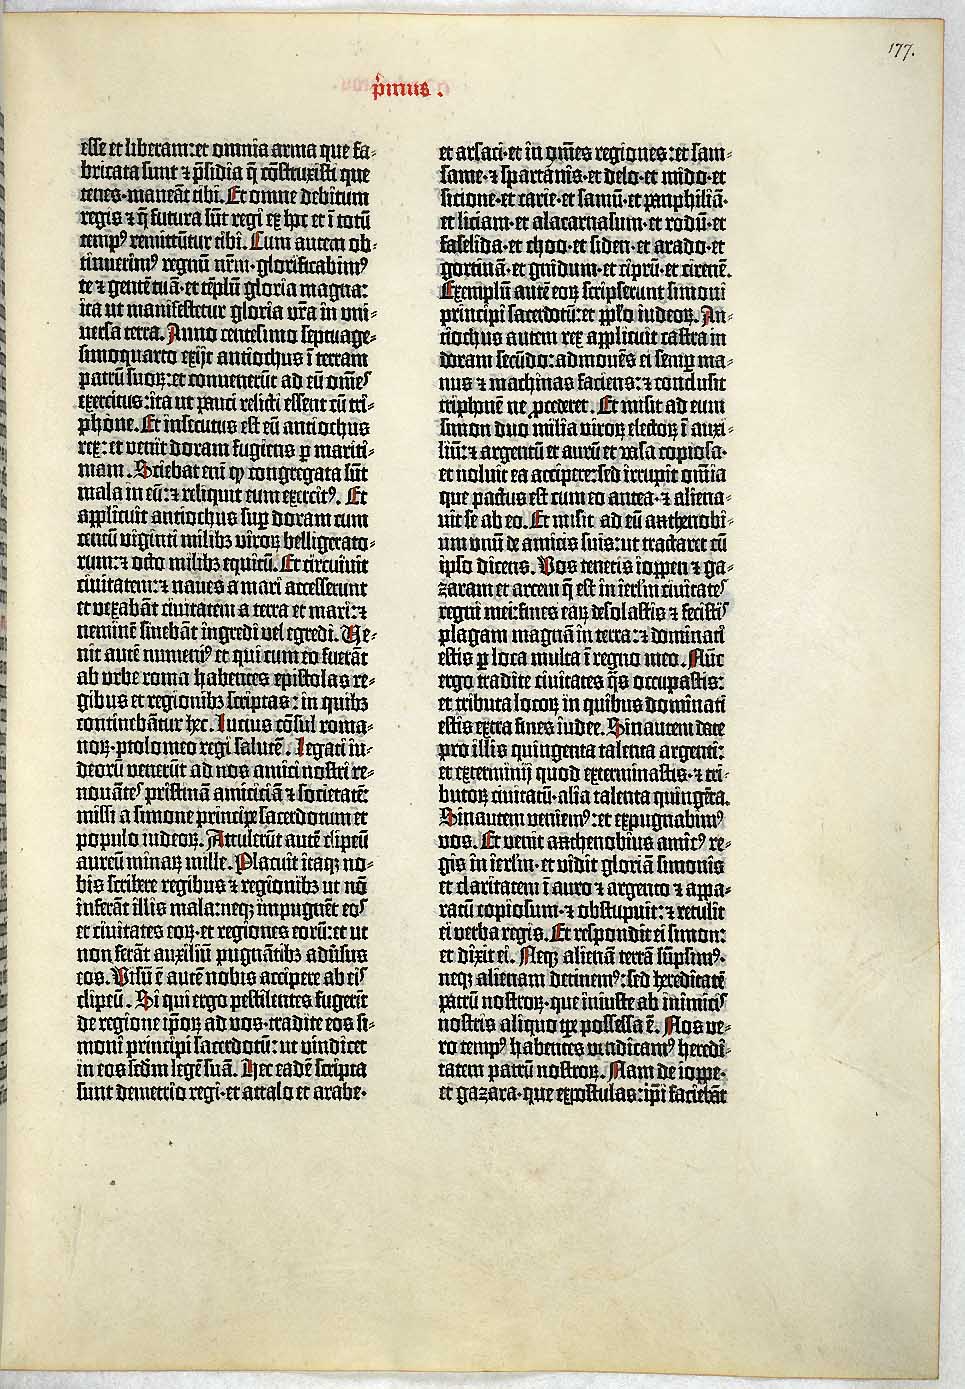 177.
p̄mus .
esse et liberam: et omnia arma que fa⸗
bricata sunt ⁊ p̄sidia q̄ cōstruxisti que
tenes· maneāt tibi. Et omne debitum
regis ⁊ q̄ futura sūt regi ex hoc et ī totū
temp⁹ remittūtur tibi. Cum autem ob⸗
tinuerim⁹ regnū nr̄m· glorificabim⁹
te ⁊ gentē tuā· et tēplū gloria magna:
ita ut manifestetur gloria vr̄a in uni⸗
versa terra. Anno centesimo septuage⸗
simoquarto exijt antiochus ī terram
patrū suoꝝ: et convenerūt ad eū om̄es
exercitus: ita ut pauci relicti essent cū tri⸗
phone. Et insecutus est eū antiochus
rex: et venit doram fugiens ꝑ mariti⸗
mam. Sciebat enī ꝙ congregata sūt
mala in eū: ⁊ reliquit eum exercit⁹. Et
applicuit antiochus suꝑ doram cum
centū viginti milibꝫ viroꝝ belligerato⸗
rum: ⁊ octo milibꝫ equitū. Et circuivit
civitatem: ⁊ naves a mari accesserunt
et vexabāt civitatem a terra et mari: ⁊
neminē sinebāt ingredi vel egredi. Ve⸗
nit autē numeni⁹ et qui cum eo fuerāt
ab urbe roma habentes epistolas re⸗
gibus et regionibꝫ scriptas: in quibꝫ
continebātur hec. Lucius cōsul roma⸗
noꝝ· ptolomeo regi salutē. Legati iu⸗
deorū venerūt ad nos amici nostri re⸗
novātes pristinā amiciciā ⁊ societatē:
missi a simone principe sacerdotum et
populo iudeoꝝ. Attulerūt autē clipeū
aureū minaꝝ mille. Placuit itaqꝫ no⸗
bis scribere regibus ⁊ regionibꝫ ut nō
inferāt illis mala: neqꝫ impugnēt eos
et civitates eoꝝ· et regiones eorū: et ut
non ferāt auxiliū pugnātibꝫ adv̄sus
eos. Visū ē autē nobis accipere ab eis
clipeū. Si qui ergo pestilentes fugerīt
de regione ip̄oꝝ ad vos· tradite eos si⸗
moni principi sacerdotū: ut vindicet
in eos scd̄m legē suā. Hec eadē scripta
sunt demetrio regi· et attalo et arabe·
et arsaci· et in om̄es regiones: et sam⸗
same· ⁊ spartanis· et delo· et mido· et
sicione· et carie· et samū· et pamphiliā·
et liciam· et alacarnasum· et rodū· et
faselida· et choo· et siden· et arado· et
gortinā· et gnidum· et ciprū· et cirenē.
Exemplū autē eoꝝ scripserunt simoni
principi sacerdotū: et ꝓplo iudeoꝝ. An⸗
tiochus autem rex applicuit castra in
doram secūdo: admovēs ei semꝑ ma⸗
nus ⁊ machinas faciens: ⁊ conclusit
triphonē ne ꝓcederet. Et misit ad eum
simon duo milia viroꝝ electoꝝ ī auxi⸗
liū: ⁊ argentū et aurū et vasa copiosa·
et noluit ea accipere: sed irrupit om̄ia
que pactus est cum eo antea· ⁊ aliena⸗
vit se ab eo. Et misit ad eū athenobi⸗
um unū de amicis suis: ut tractaret cū
ipso dicens. Vos tenetis ioppen ⁊ ga⸗
zaram et arcem q̄ est in ierlm̄ civitates
regni mei: fines eaꝝ desolastis ⁊ fecistis
plagam magnā in terra: ⁊ dominati
estis ꝑ loca multa ī regno meo. Nūc
ergo tradite civitates q̄s occupastis:
et tributa locoꝝ in quibus dominati
estis extra fines iudee. Sin autem date
pro illis quingenta talenta argenti:
et exterminij quod exterminastis· ⁊ tri⸗
butoꝝ civitatū· alia talenta quingēta.
Sin autem veniem⁹: et expugnabim⁹
vos. Et venit athenobius amic⁹ re⸗
gis in ierlm̄· et vidit gloriā simonis
et claritatem ī auro ⁊ argento ⁊ appa⸗
ratū copiosum· ⁊ obstupuit: ⁊ retulit
ei verba regis. Et respondit ei simon:
et dixit ei. Neqꝫ alienā terrā sūpsim⁹·
neqꝫ alienam detinem⁹: sed hereditatē
patrū nostroꝝ· que iniuste ab inimicis
nostris aliquo tꝑe possessa ē. Nos ve⸗
ro temp⁹ habentes vendicam⁹ heredi⸗
tatem patrū nostroꝝ. Nam de ioppe·
et gazara· que expostulas: ip̄i faciebāt